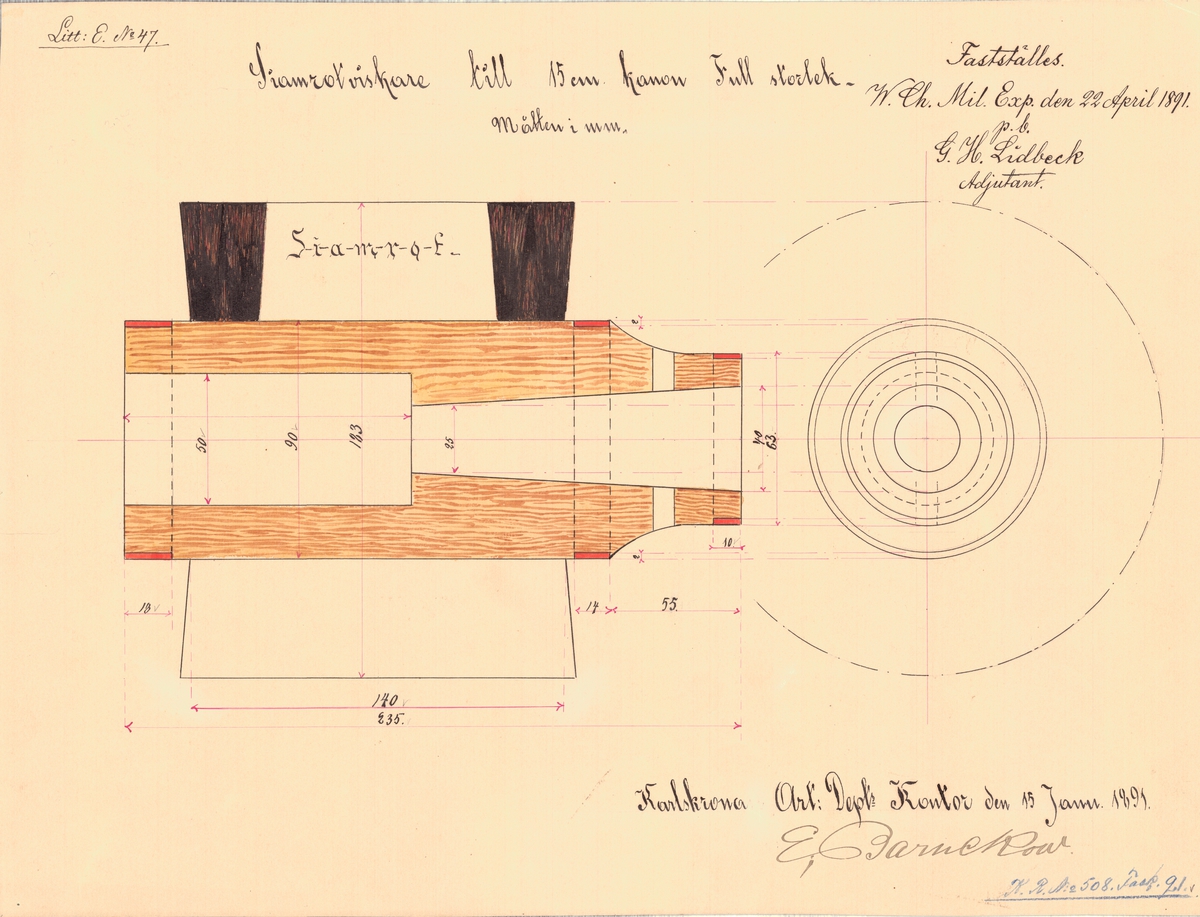 Litt: E. No 47.
Siamrotviskare till 15 cm kanon Full storlek.
Måtten i mm.
Fastställes.
W. Ch. Mil. Exp. den 22 April 1891.
p. b.
G. H. Lidbeck
Adjutant.
S-i-a-m-r-o-t.
2
50
90
183
25
40
63
10
2
18
14
55
140
235.
Karlskrona Art: Depts Kontor den 15 Janu. 1891.
E. Barnekow.
K. R. No 508.